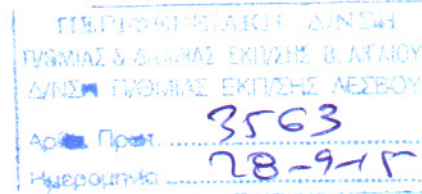 ΠΕΡΙΦΕΡΕΙΑΚΗ Δ/ΝΣΗ
Π/ΘΜΙΑΣ & Δ/ΘΜΙΑΣ ΕΚΠ/ΣΗΣ Β. ΑΙΓΑΙΟΥ
Δ/ΝΣΗ Π/ΘΜΙΑΣ ΕΚΠ/ΣΗΣ ΛΕΣΒΟΥ
Αριθμ. Πρωτ. 3563
Ημερομηνία 28-9-15